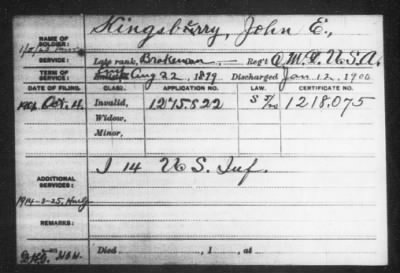 NAME OF SOLDIER: Kingsberry, John E.,
SERVICE: Late rank, Brakeman — Reg't Q. M. D. U.S.A.
TERM OF SERVICE: Aug 22, 1899 Discharged Jan 12, 1900
DATE OF FILING. CLASS. APPLICATION NO. LAW. CERTIFICATE NO.
1901 Oct. 11 Invalid, 1275522 1218.075
Widow,
Minor,
ADDITIONAL SERVICES: I 14 U.S. Inf.
REMARKS:
Died , 1 , at